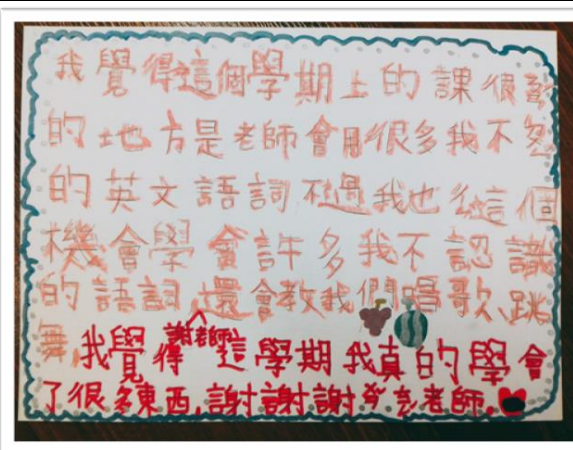 我覺得這個學期上的課很
的地方是老師會用很多我不
的英文語詞不過我也從這個
機會學會許多我不認識
的語詞,還會教我們唱歌、跳
舞,我覺得謝老師這學期我真的學會
了很多東西,謝謝謝老師。